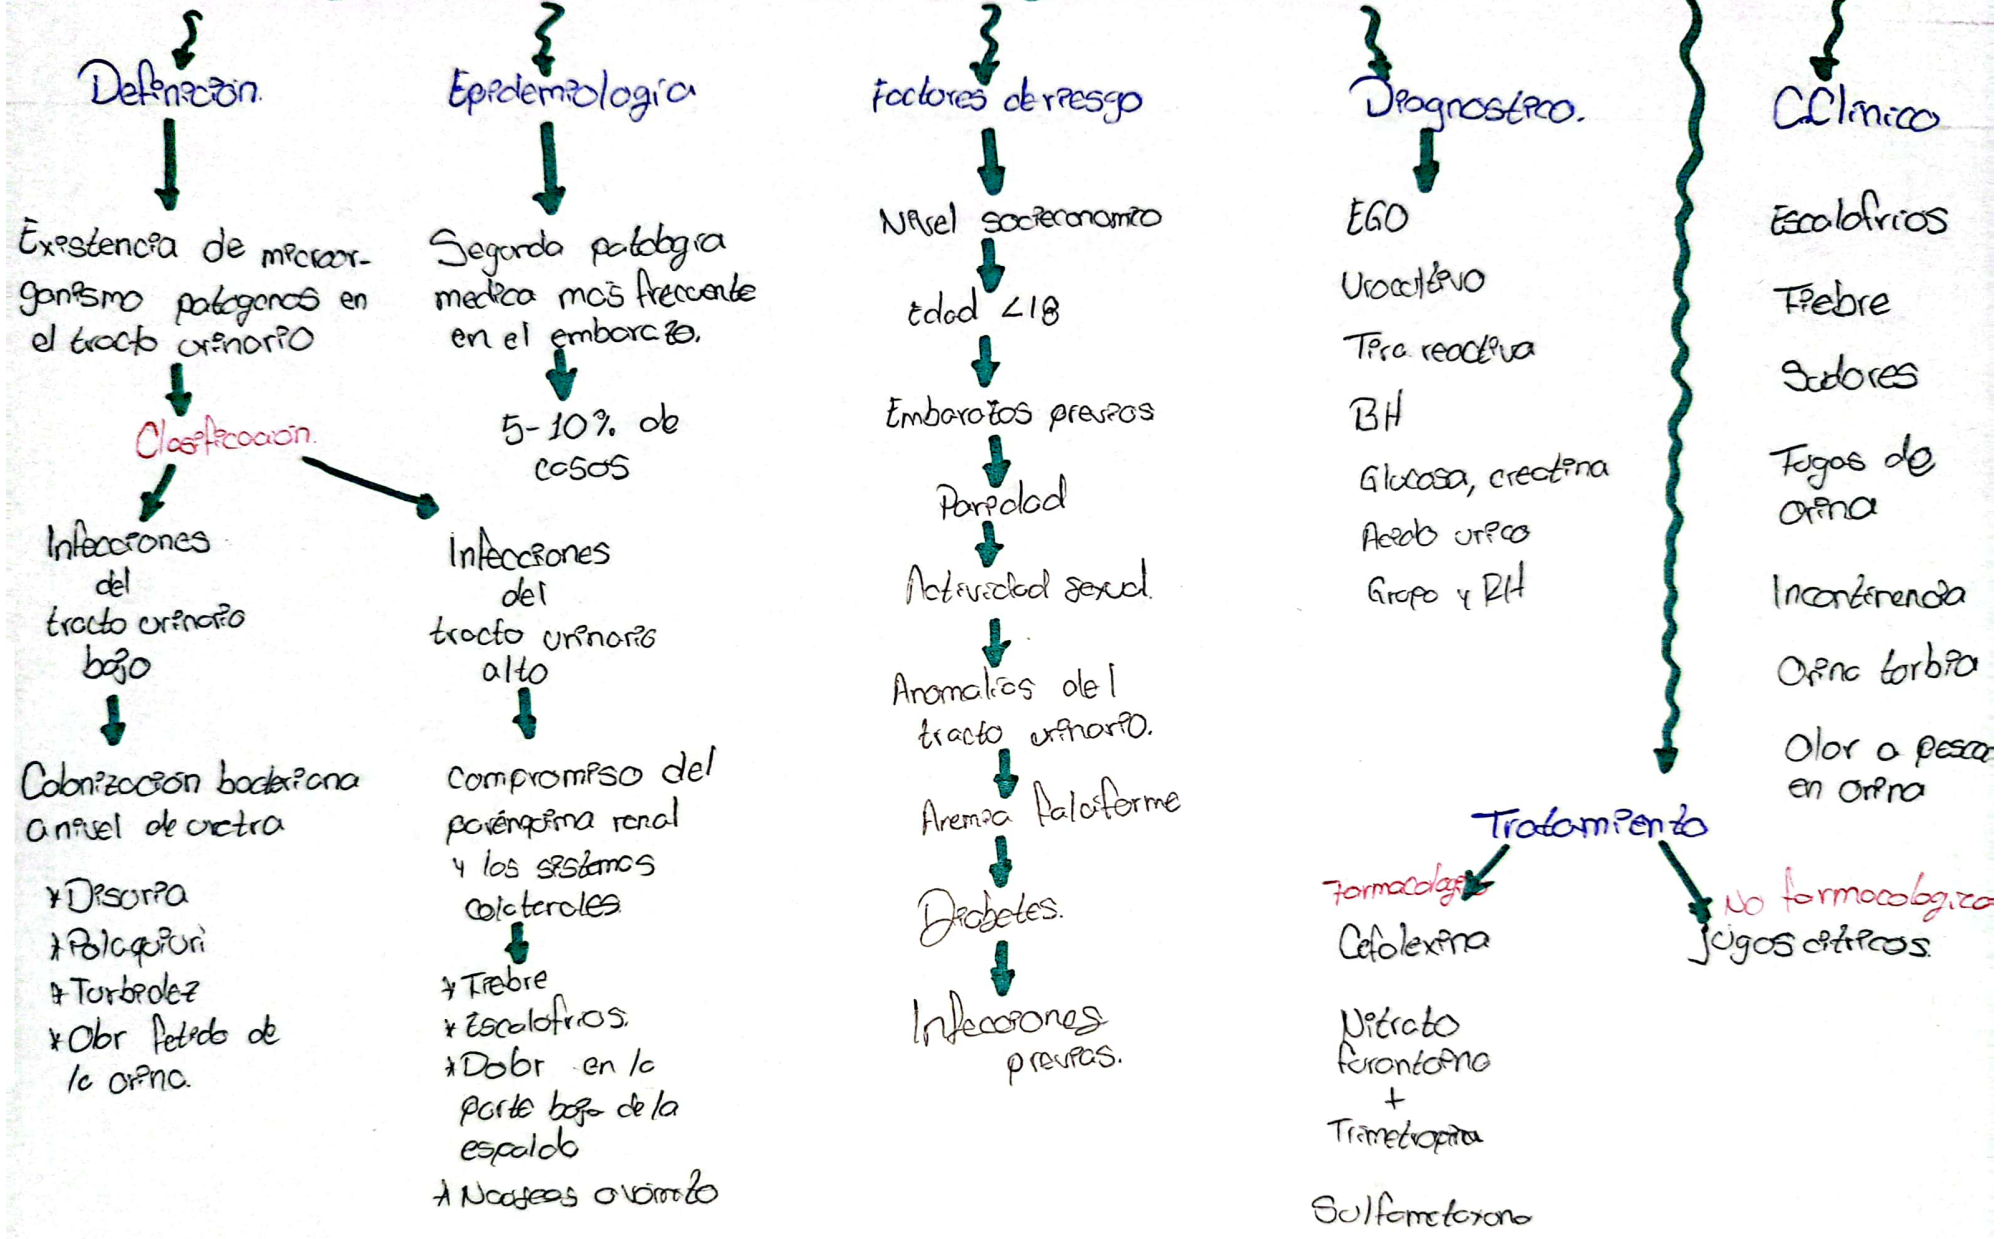 Definición.
Existencia de microor-
ganismo patogenos en
el tracto urinario
Clasificación.
Infecciones
del
tracto urinario
bajo
Colonización bacteriana
a nivel de uretra
*Disuria
*Polaquiuri
*Turbidez
*Olor fetido de
la orina.
Infecciones
del
tracto urinario
alto
Compromiso del
parénquima renal
y los sistemas
colaterales
*Fiebre
*Escalofrios.
*Dolor en la
parte baja de la
espalda
*Nauseas o vomito
Epidemiología
Segunda patología
medica mas frecuente
en el embarazo.
5-10% de
casos
Factores de riesgo
Nivel socieconomico
Edad <18
Embarazos previos
Paridad
Actividad sexual.
Anomalias del
tracto urinario.
Anemia falciforme
Diabetes.
Infecciones
previas.
Diagnostico.
EGO
Urocultivo
Tira reactiva
BH
Glucosa, creatina
Acido urico
Grupo y RH
Tratamiento
Farmacologico
Cefalexina
Nitrato
furantoina
+
Trimetropina
Sulfametoxono
No farmacologico
jugos citricos.
C.Clinico
Escalofrios
Fiebre
Sudores
Fugas de
orina
Incontinencia
Orina turbia
Olor a pesca
en orina